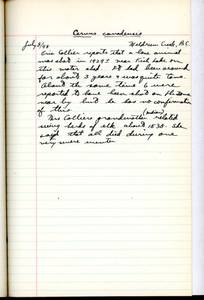 Cervus canadensis
July 5/48 Meldrum Creek, B.C.
Eric Collier reports that a lone animal
was shot in 1929± near Rick Lake on
this water shed. It had been around
for about 3 years & was quite tame.
About the same time 6 were
reported to have been shot on
near by but he has no confirmation
of this.
(Indian)
Mrs Collier's grandmother related
seeing herds of elk about 1838. She
said that all died during one
very severe winter